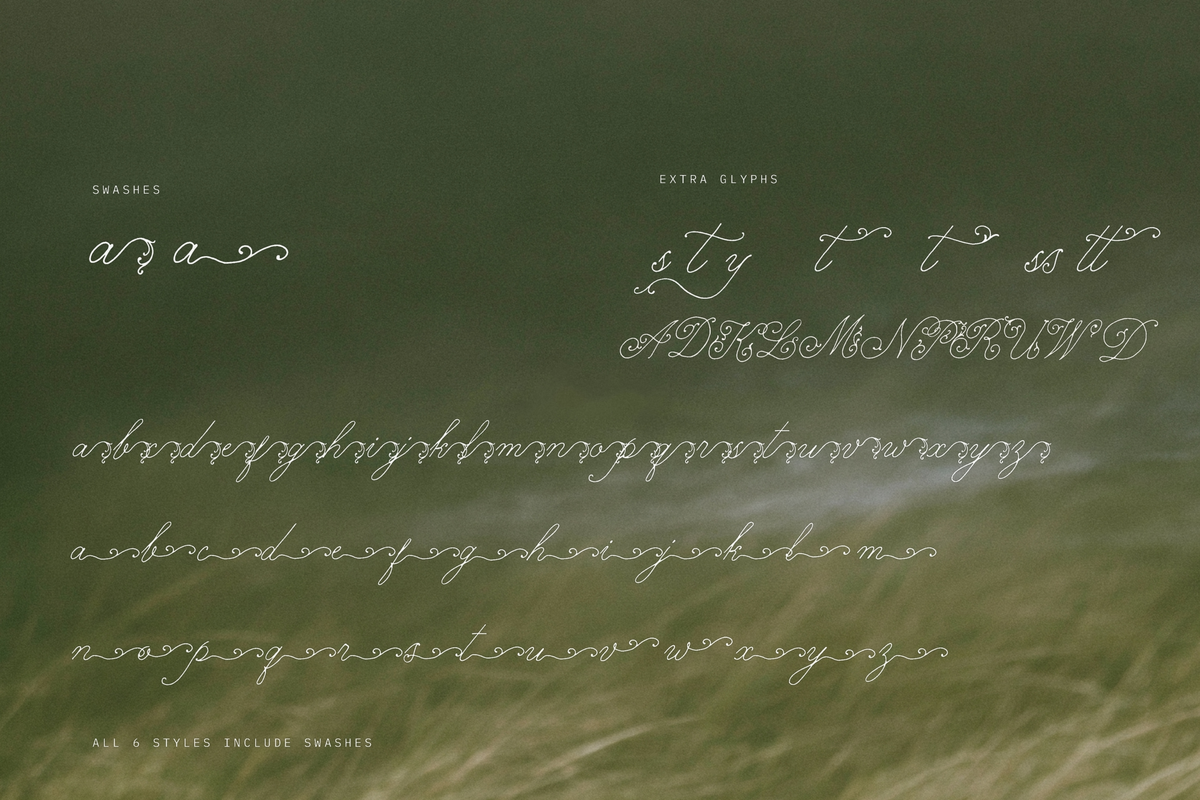 SWASHES
a a
EXTRA GLYPHS
s t y t t ss tt
A D K L M N P R U W D
a b c d e f g h i j k l m n o p q r s t u v w x y z
a b c d e f g h i j k l m
n o p q r s t u v w x y z
ALL 6 STYLES INCLUDE SWASHES